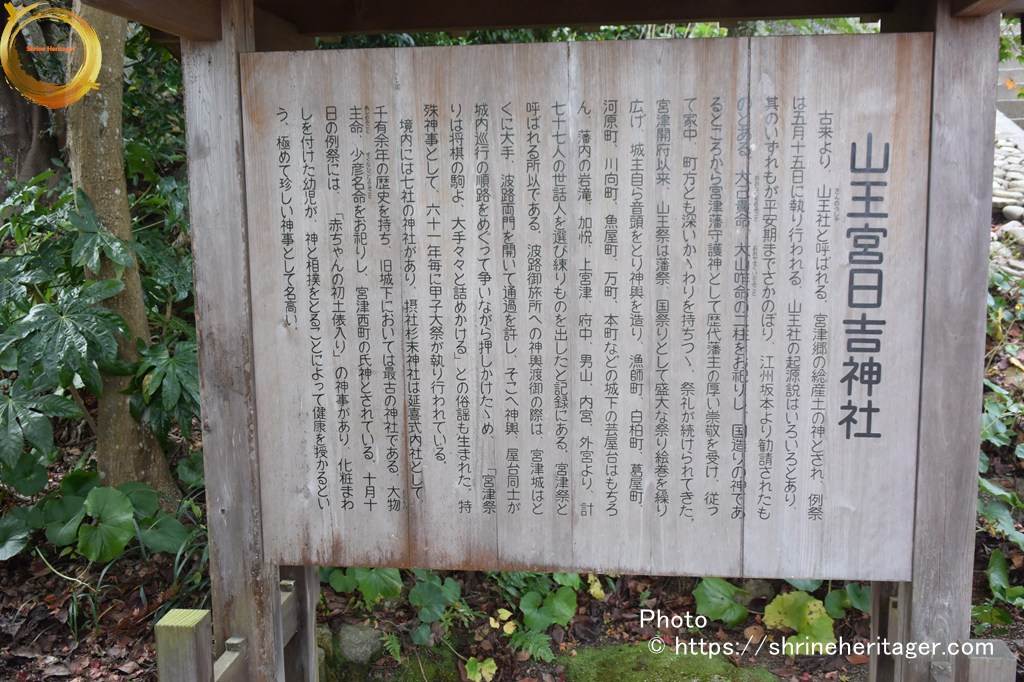 Shrine Heritager
山王宮日吉神社
古来より、山王社と呼ばれる、宮津郷の総産土の神とされ、例祭
は五月十五日に執り行われる。山王社の起源説はいろいろとあり、
其のいずれもが平安期までさかのぼり、江州坂本より勧請されたも
のとある。大己貴命、大山咋命の二柱をお祀りし、国造りの神であ
るところから宮津藩守護神として歴代藩主の厚い崇敬を受け、従っ
て家中、町方とも深いかゝわりを持ちつゝ、祭礼が続けられてきた。
宮津開府以来、山王祭は藩祭、国祭りとして盛大な祭り絵巻を繰り
広げ、城主自ら音頭をとり神輿を造り、漁師町、白柏町、葛屋町、
河原町、川向町、魚屋町、万町、本町などの城下の芸屋台はもちろ
ん、藩内の岩滝、加悦、上宮津、府中、男山、内宮、外宮より、計
七十七人の世話人を選び練りものを出したと記録にある。宮津祭と
呼ばれる所以である。波路御旅所への神輿渡御の際は、宮津城はと
くに大手、波路両門を開いて通過を許し、そこへ神輿、屋台同士が
城内巡行の順路をめぐって争いながら押しかけたゝめ、「宮津祭
りは将棋の駒よ、大手々々と詰めかける」との俗謡も生まれた。特
殊神事として、六十一年毎に甲子大祭が執り行われている。
境内には七社の神社があり、摂社杉末神社は延喜式内社として
千有余年の歴史を持ち、旧城下においては最古の神社である。大物
主命、少彦名命をお祀りし、宮津西町の氏神とされている。十月十
日の例祭には、「赤ちゃんの初土俵入り」の神事があり、化粧まわ
しを付けた幼児が、神と相撲をとることによって健康を授かるとい
う、極めて珍しい神事として名高い。
Photo
© https://shrineheritager.com